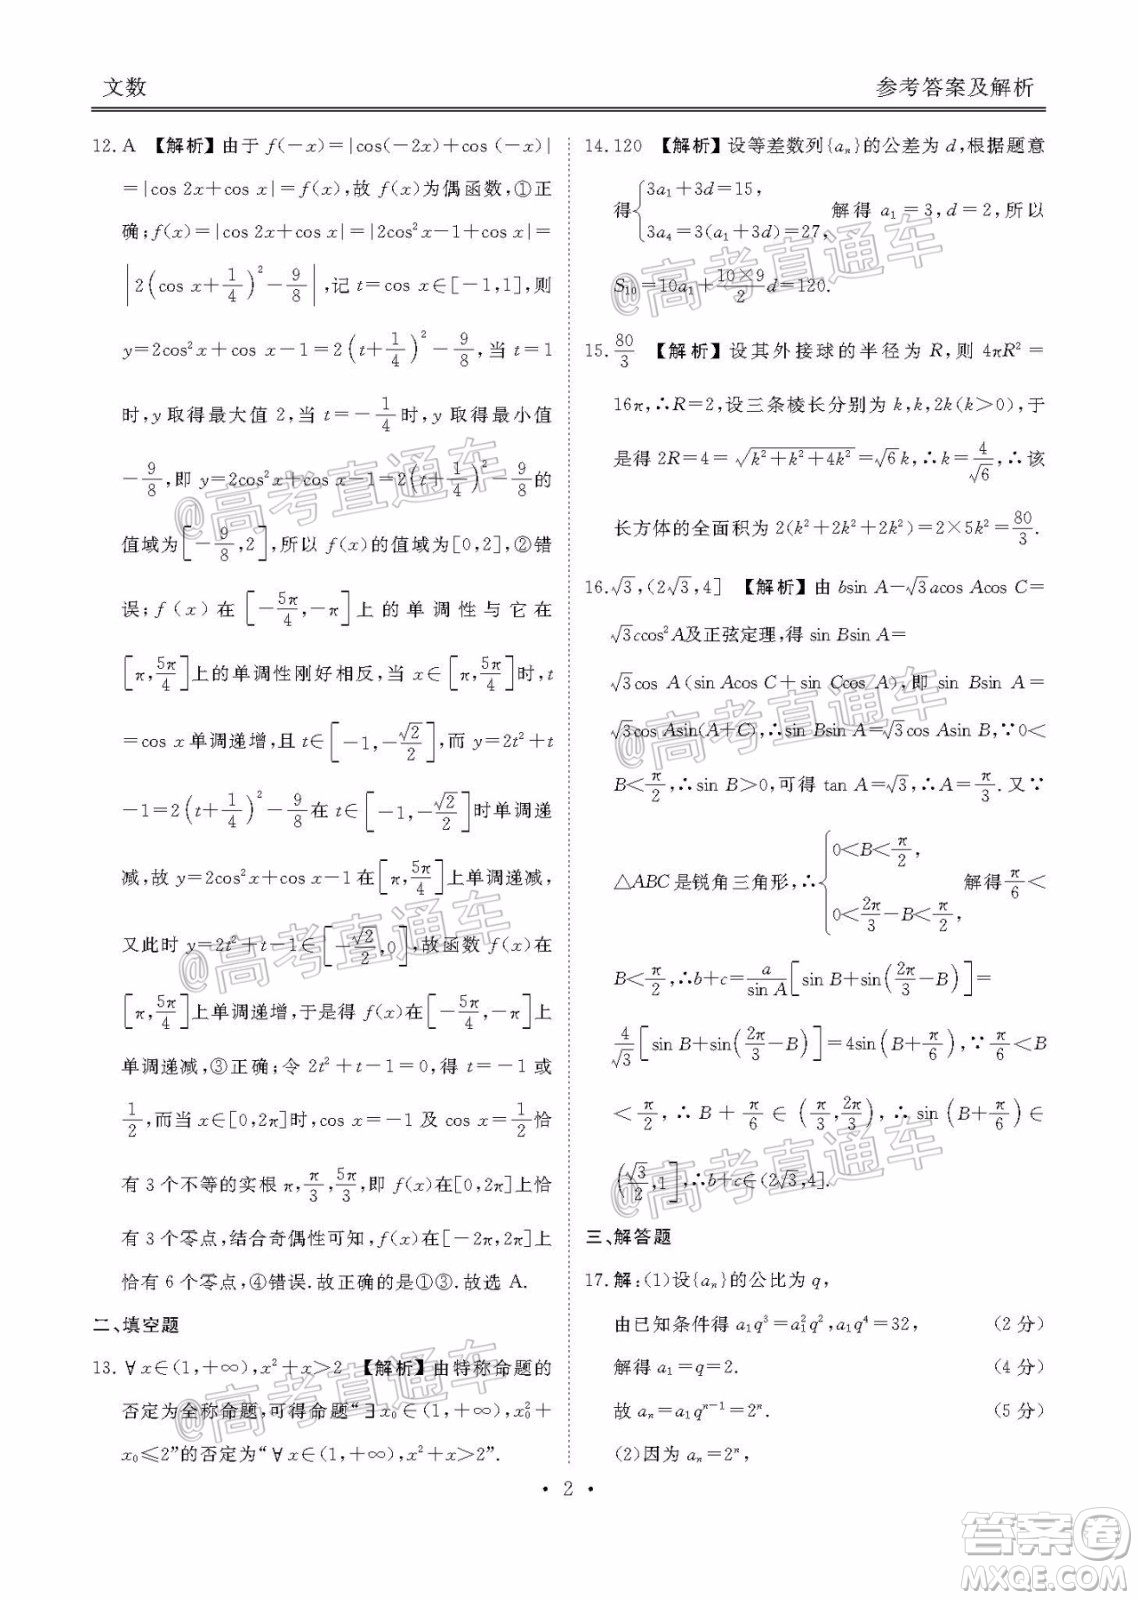 文数
参考答案及解析
12. A 【解析】由于 f(−x)=|cos(−2x)+cos (−x)|
=|cos 2x+cos x|=f(x),故 f(x)为偶函数,①正
确;f(x)=|cos 2x+cos x|=|2cos²x−1+cos x|=
|2(cos x+1/4)²−9/8|,记 t=cos x∈[−1,1],则
y=2cos²x+cos x−1=2(t+1/4)²−9/8,当 t=1
时,y 取得最大值 2,当 t=−1/4时,y 取得最小值
−9/8,即 y=2cos²x+cos x−1=2(t+1/4)²−9/8的
值域为[−9/8,2],所以 f(x)的值域为[0,2],②错
误;f(x)在[−5π/4,−π]上的单调性与它在
[π,5π/4]上的单调性刚好相反,当 x∈[π,5π/4]时,t
=cos x单调递增,且 t∈[−1,−√2/2],而 y=2t²+t
−1=2(t+1/4)²−9/8在 t∈[−1,−√2/2]时单调递
减,故 y=2cos²x+cos x−1在[π,5π/4]上单调递减,
又此时 y=2t²+t−1∈[−√2/2,0],故函数 f(x)在
[π,5π/4]上单调递增,于是得 f(x)在[−5π/4,−π]上
单调递减,③正确;令 2t²+t−1=0,得 t=−1,
1/2,而当 x∈[0,2π]时,cos x=−1 及 cos x=1/2恰
有 3 个不等的实根 π,π/3,5π/3,即 f(x)在[0,2π]上恰
有 3 个零点,结合奇偶性可知,f(x)在[−2π,2π]上
恰有 6 个零点,④错误.故正确的是①③.故选 A.
二、填空题
13. ∀x∈(1,+∞),x²+x>2 【解析】由特称命题的
否定为全称命题,可得命题“∃x₀∈(1,+∞),x₀²+
x₀≤2”的否定为“∀x∈(1,+∞),x²+x>2”.
14. 120 【解析】设等差数列{aₙ}的公差为 d,根据题意
得{3a₁+3d=15, 3a₄=3(a₁+3d)=27, 解得 a₁=3,d=2,所以
S₁₀=10a₁+10×9/2 d=120.
15. 80/3 【解析】设其外接球的半径为 R,则 4πR²=
16π,∴R=2,设三条棱长分别为 k,k,2k(k>0),于
是得 2R=4=√(k²+k²+4k²)=√6k,∴k=4/√6,∴该
长方体的全面积为 2(k²+2k²+2k²)=2×5k²=80/3.
16. √3,(2√3,4] 【解析】由 bsin A−√3acos Acos C=
√3ccos²A及正弦定理,得 sin Bsin A=
√3cos A(sin Acos C+sin Ccos A),即 sin Bsin A=
√3cos Asin(A+C),∴sin Bsin A=√3cos Asin B,∵0<
B<π/2,∴sin B>0,可得 tan A=√3,∴A=π/3.又∵
△ABC是锐角三角形,∴{0<B<π/2, 0<2π/3−B<π/2, 解得π/6<
B<π/2,∴b+c=a/sin A[sin B+sin(2π/3−B)]=
4/√3[sin B+sin(2π/3−B)]=4sin(B+π/6),∵π/6<B
<π/2,∴B+π/6∈(π/3,2π/3),∴sin(B+π/6)∈
(√3/2,1],∴b+c∈(2√3,4].
三、解答题
17. 解:(1)设{aₙ}的公比为 q,
由已知条件得 a₁q³=a₁²q²,a₁q⁴=32, (2 分)
解得 a₁=q=2. (4 分)
故 aₙ=a₁qⁿ⁻¹=2ⁿ. (5 分)
(2)因为 aₙ=2ⁿ,
• 2 •
@高考直通车
@高考直通车
@高考直通车
@高考直通车
@高考直通车
@高考直通车
@高考直通车
答案卷
MXQE.COM